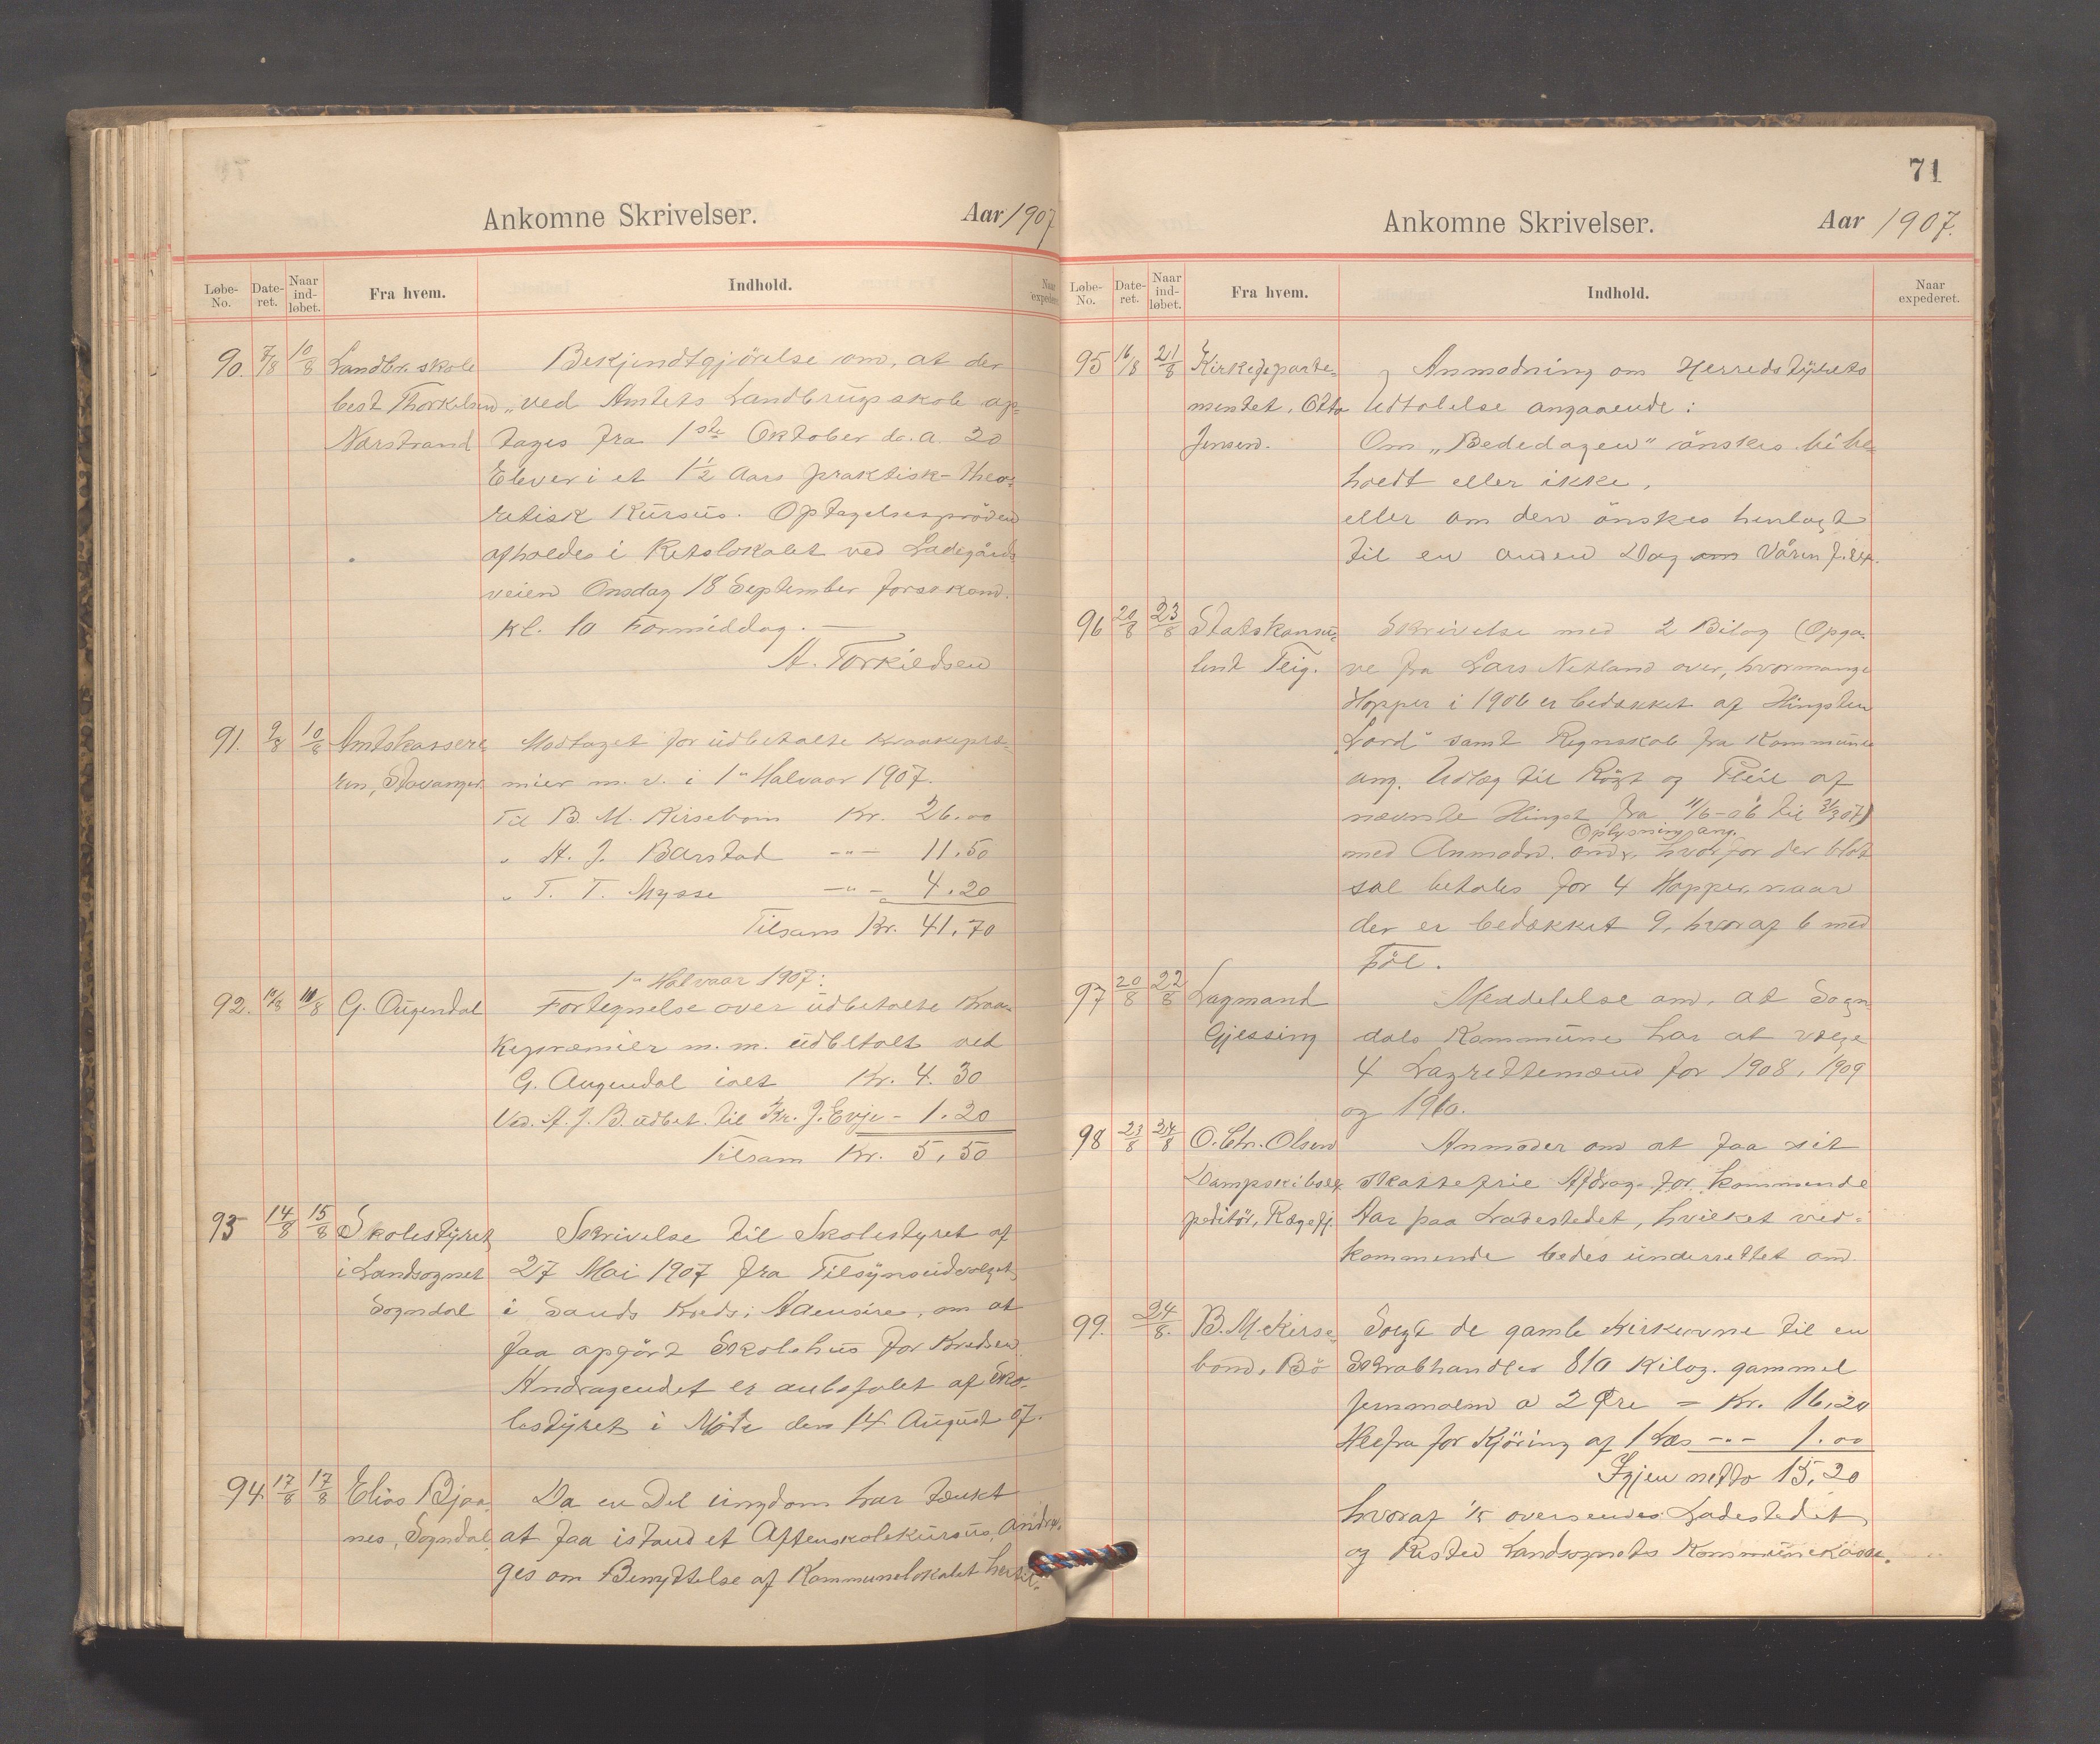 Ankomne Skrivelser. Aar 1907
Løbe-No. Date-ret. Naar ind-løbet. Fra hvem. Indhold. Naar expederet
90. 7/8 10/8 Landbr. skole Bekjendtgjörelse om, at der
best. Thorkilsen „ved Amtets Landbrugsskole op-
Narstrand tages fra 1ste Oktober d.a. 20
Elever i et 1½ Aars praktisk-theo-
retisk Kursus. Optagelsespröven
afholdes i Retslokalet ved Ladegårds
veien Onsdag 18 September förstkom.
Kl. 10 Formiddag. —
A. Torkildsen
91. 9/8 10/8 Amtskassere- Modtaget for udbetalte Kraakepræ-
ren, Stavanger. mier m. v. i 1ste Halvaar 1907.
Til B. M. Kirsebom Kr. 26.00
„ A. J. Barstad -"- 11.50
„ T. T. Mysse -"- 4.20
Tilsam Kr. 41.70
1ste Halvaar 1907:
92. 10/8 10/8 G. Augendal Fortegnelse over udbetalte Kraa-
kepræmier m. m. udbetalt ved
G. Augendal ialt Kr. 4.30
Ved A. J. B. udbet. til Kr. J. Evje - 1.20
Tilsam Kr. 5.50
93 14/8 15/8 Skolestyret Skrivelse til Skolestyret af
i Landsognet 27 Mai 1907 fra Tilsynsudvalget
Sogndal i Sands Kreds, Aaensire, om at
faa opgört Skolehus for Kredsen.
Andragendet er anbefalet af Sko-
lestyret i Möte den 14 August 07.
94 17/8 17/8 Elias Bjaa- Da en Del ungdom har tænkt
nes, Sogndal. at faa istand et Aftenskolekursus, andra-
ges om Benyttelse af Kommunelokalet hertil.
71
Ankomne Skrivelser. Aar 1907.
Løbe-No. Date-ret. Naar ind-løbet. Fra hvem. Indhold. Naar expederet.
95 16/8 21/8 Kirkedeparte- Anmodning om Herredstyrets
mentet, Otto Udtalelse angaaende:
Jensen. Om „Bededagen" önskes bibe-
holdt eller ikke,
eller om den önskes henlagt
til en anden Dag om Våren f. Ex.
96 20/8 23/8 Statskonsu- Skrivelse med 2 Bilag (Opga-
lent Teig. ve fra Lars Netland over, hvormange
Hopper i 1906 er bedækket af Hingsten
„Lord" samt Regnskab fra Kommunen
ang. Udlæg til Rögt og Pleie af
nævnte Hingst fra 11/6-06 til 3/3 07)
Oplysning ang.
med Anmodn. om, hvorfor der blot
sal betales for 4 Hopper, naar
der er bedækket 9, hvoraf 6 med
Föl.
97 20/8 22/8 Lagmand Meddelelse om, at Sogn-
Gjessing dals Kommune har at vælge
4 Lagrettemænd for 1908, 1909
og 1910.
98 23/8 24/8 O. Chr. Olsen Anmoder om at faa sit
Dampskibsex- skattefrie Afdrag for kommende
peditör, Rægefj. Aar paa Ladestedet, hvilket ved-
kommende bedes underrettet om.
99. 24/8. B. M. Kirse- Solgt de gamle Kirkeovne til en
bom, Bö Skrabhandler 810 Kilog. gammel
Jernmalm a 2 Øre = Kr. 16,20
Herfra for Kjöring af 1 Læs -"- 1.00
Igjen netto 15,20
hvoraf 1/5 oversendes Ladestedet
og Resten Landsognets Kommunekasse.